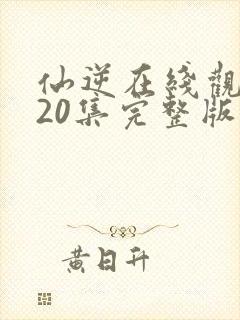 仙逆在线觀
20集完整版
黄日升